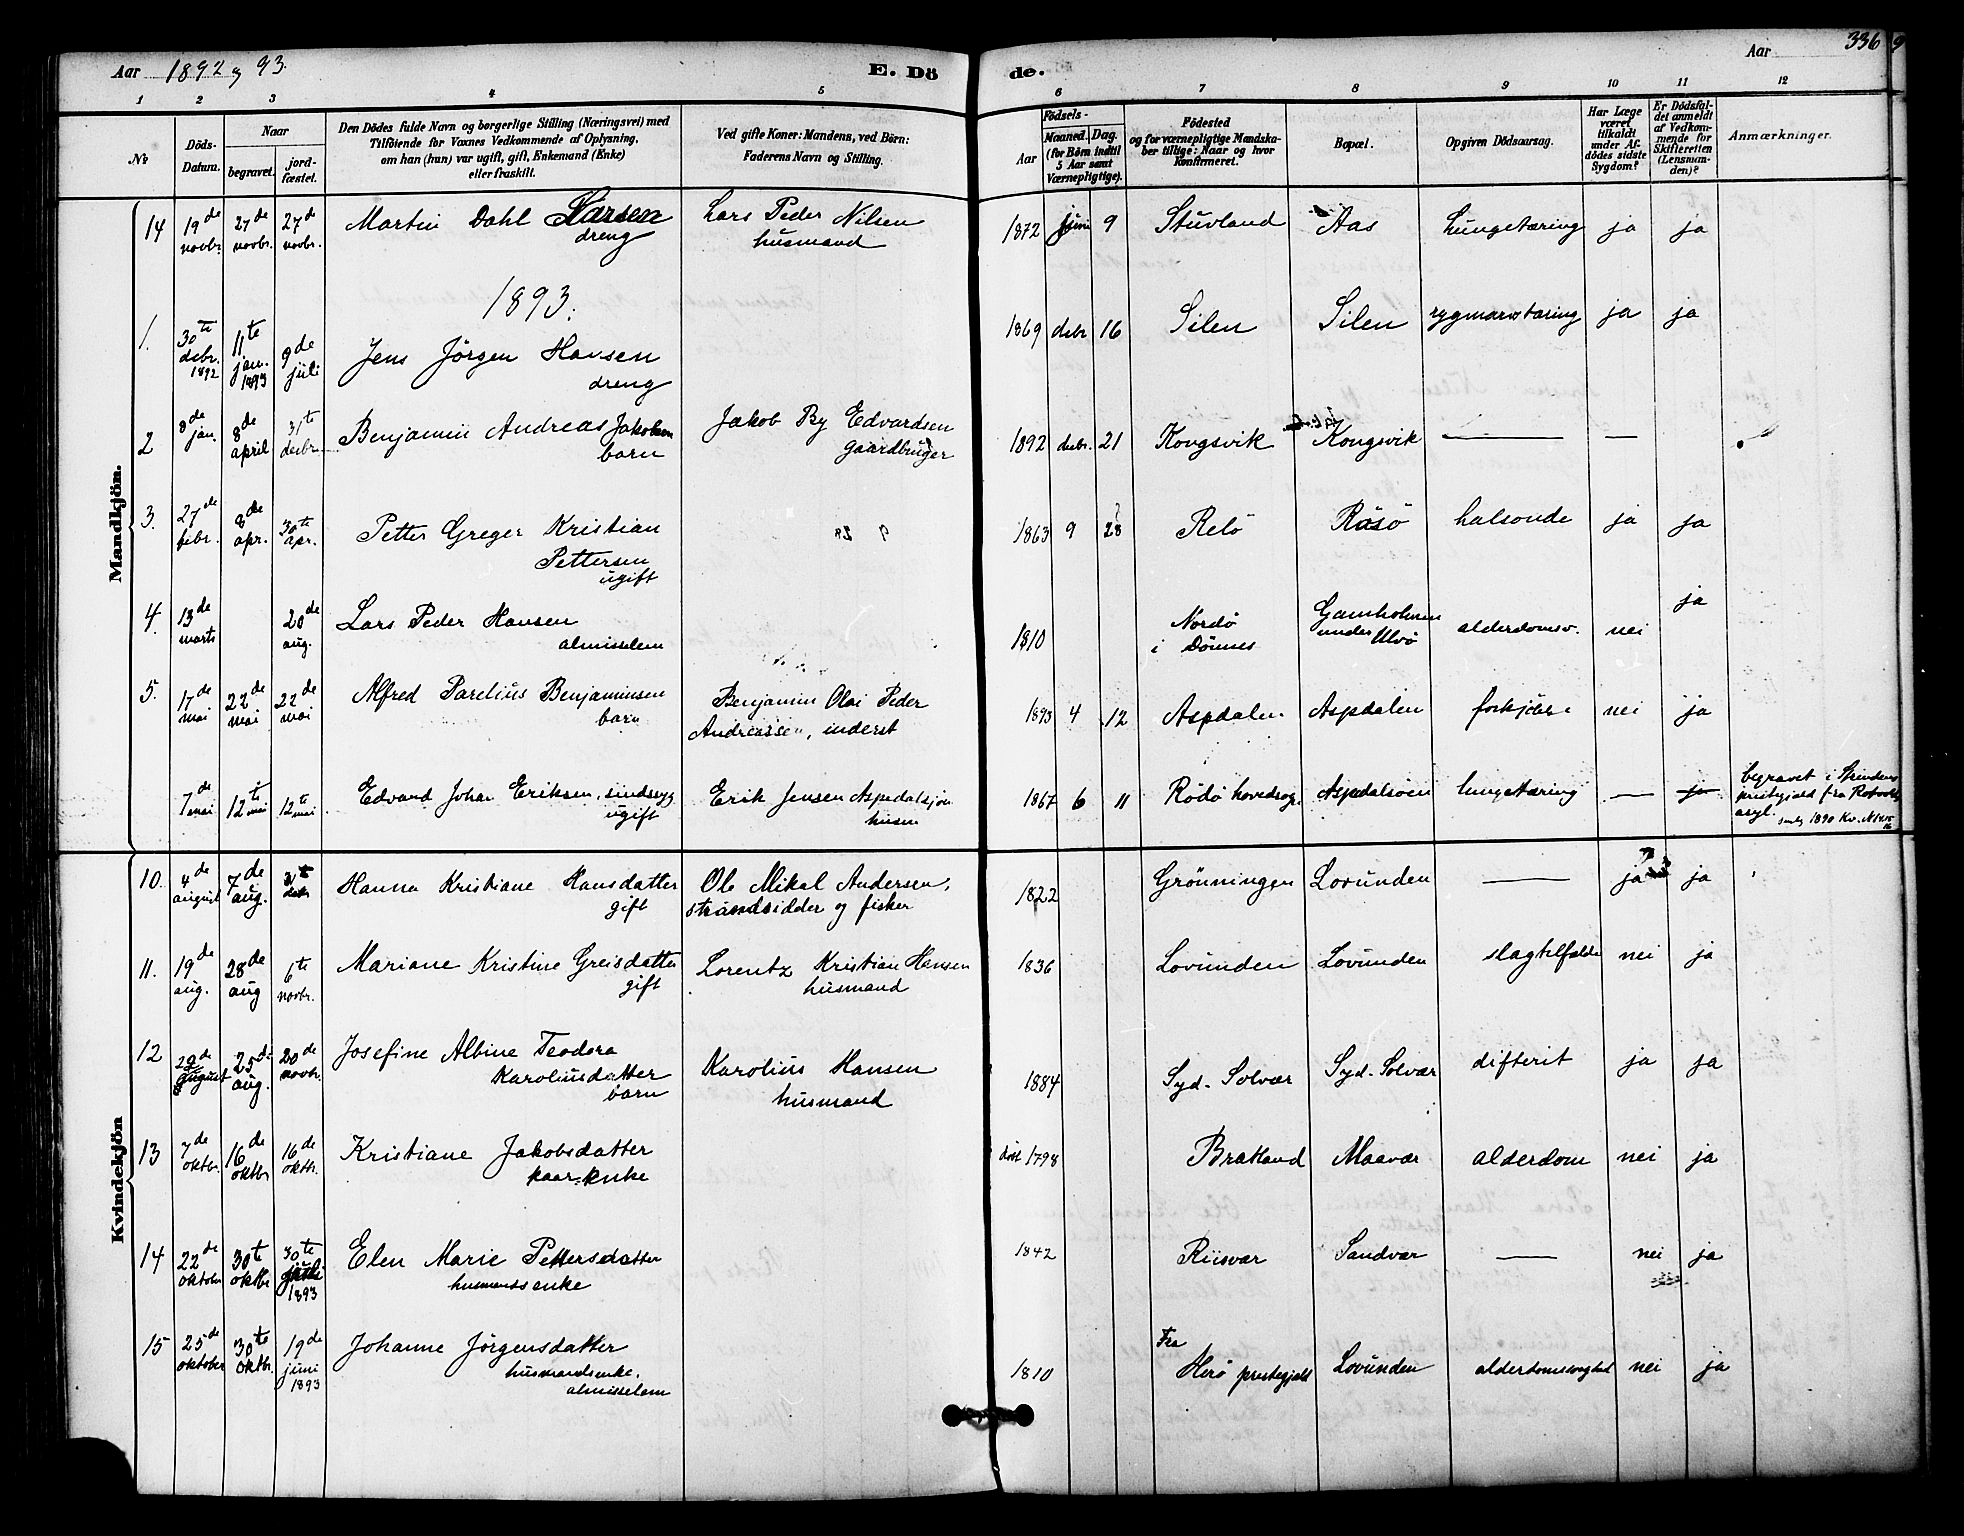 Aar 1892 og 93.
E. Dö
de.
Aar
336
1 2 3 4 5 6 7 8 9 10 11 12
No
Döds-
Datum.
Naar
begravet.
jord-
fæstet.
Den Dödes fulde Navn og borgerlige Stilling (Næringsvei) med
Tilföiende for Voxnes Vedkommende af Oplysning,
om han (hun) var ugift, gift, Enkemand (Enke)
eller fraskilt.
Ved gifte Koner: Mandens, ved Börn:
Faderens Navn og Stilling.
Födsels-
Aar
Maaned. Dag.
(for Börn indtil
5 Aar samt
Værnepligtige).
Födested
og for værnepligtige Mandska-
ber tillige: Naar og hvor
Konfirmeret.
Bopæl.
Opgiven Dödsaarsag.
Har Læge
været
tilkaldt
under Af-
dödes sidste
Sygdom?
Er Dödsfal-
det anmeldt
af Vedkom-
mende for
Skifteretten
(Lensman-
den)?
Anmærkninger.
Mandkjön.
14 19de novbr. 27de novbr. 27de novbr. Martin Dahl Larsen dreng Lars Peder Nilsen husmand 1872 juni 9 Stuvland Aas lungetæring ja ja
1893.
1. 30te debr. 1892 11te jan. 1893 9de juli Jens Jörgen Hansen dreng 1869 debr 16 Silen Silen rygmarvstæring ja ja
2 8de jan. 8de april 31te desbr. Benjamin Andreas Jakobsen barn Jakob By Edvardsen gaardbruger 1892 desbr. 21 Kongsvik Kongsvik — —
3. 27de febr. 8de apr. 30te apr. Petter Greger Kristian Pettersen ugift 1863 9 28 Relö Räsö halsonde ja ja
4. 13de marts 20de aug. Lars Peder Hansen almisselem 1810 Nordö i Dönnes Gamholmen under Ulvö alderdomsv. nei ja
5. 17de mai 22de mai 22de mai Alfred Parelius Benjaminsen barn Benjamin Olai Peder Andreassen, inderst 1893 4 12 Aspdalen Aspdalen forkjölelse nei ja
7de mai 12te mai 12te mai Edvard Johan Eriksen, sindssyg ugift Erik Jensen Aspedalsjøen husm 1867 6 11 Rödö hovedsogn Aspdalsöen lungetæring — ja begravet i Strindens prestegjeld fra Rotvolds asyl.
Kvindekjön
10. 4de august 7de aug. 31te debr Hanna Kristiane Hansdatter gift Ole Mikal Andersen, strandsidder og fisker 1822 Grönningen Lovunden — ja ja
11. 19de aug. 28de aug 6te novbr. Mariane Kristine Greisdatter gift Lorentz Kristian Hansen husmand 1836 Lovunden Lovunden slagtilfælde nei ja
12 august 25de aug. 20de novbr. Josefine Albine Teodora Karoliusdatter barn Karolius Hansen husmand 1884 Syd-Solvær Syd-Solvær difterit ja ja
13 7de oktbr. 16de oktbr 16de oktbr. Kristiane Jakobsdatter kaar-enke döbt 1798 Bratland Maavær alderdom nei ja
14 22de oktober 30te oktbr 30te juli 1893 Elen Marie Pettersdatter husmandsenke 1842 Riisvær Sandvær — nei ja
15 25de oktober 30te oktbr. 19de juni 1893 Johanne Jörgensdatter husmandsenke, almisselem 1810 Fra Herö prestegjeld Lovunden alderdomssvaghed nei ja